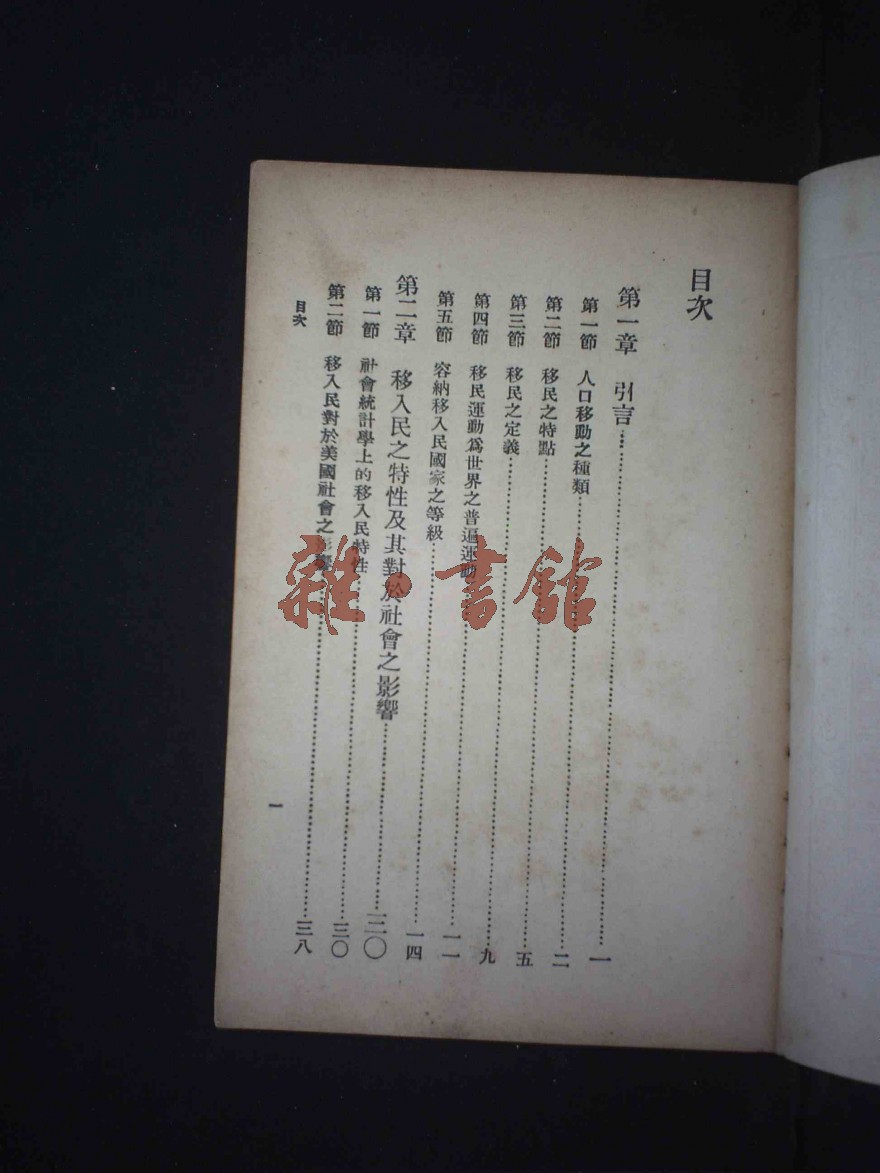 目次
第一章 引言……一
第一節 人口移動之種類……二
第二節 移民之特點……五
第三節 移民之定義……九
第四節 移民運動爲世界之普遍運動……一一
第五節 容納移入民國家之等級……一四
第二章 移入民之特性及其對於社會之影響……三〇
第一節 社會統計學上的移入民特性……三〇
第二節 移入民對於美國社會之影響……三八
目次
一
雜·書館